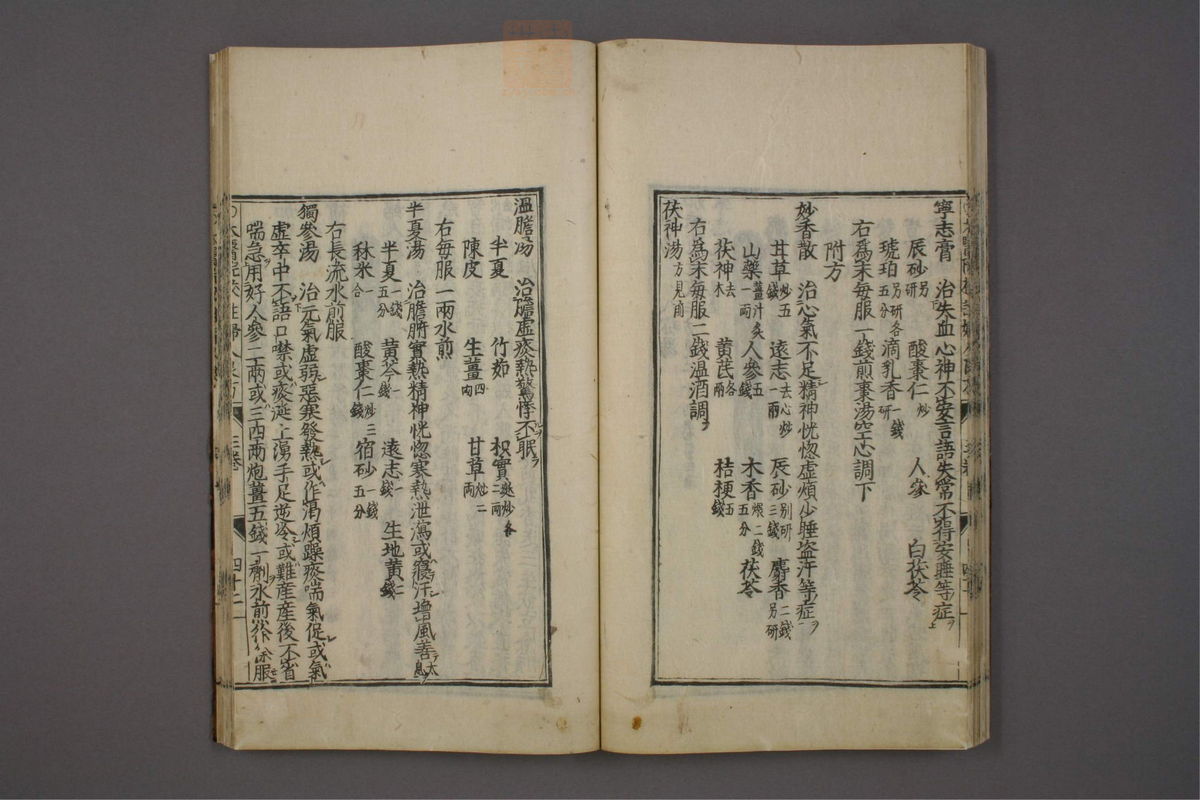 寧志膏 治失血心神不安言語失常不得安睡等症
辰砂另研 酸棗仁炒 人參 白茯苓
琥珀另研各五分 滴乳香一錢研
右為末每服一錢煎棗湯空心調下
附方
妙香散 治心氣不足精神恍惚虛煩少睡盗汗等症
甘草炒五錢 遠志去心炒一兩 辰砂別研三錢 麝香二錢另研
山藥薑汁炙一兩 人參五錢 木香煨二錢五分 茯苓
茯神去木 黄芪各一兩 桔梗五錢
右為末每服二錢温酒調
茯神湯方見前
温膽湯 治膽虛痰熱驚悸不眠
半夏 竹茹 枳實麩炒各二兩
陳皮 生薑四兩 甘草炒二兩
右每服一兩水煎
半夏湯 治膽腑實熱精神恍惚寒熱泄瀉或寢汗增風善太息
半夏一錢五分 黄芩一錢 遠志一錢 生地黄二錢
秫米一合 酸棗仁炒三錢 宿砂一錢五分
右長流水煎服
獨參湯 治元氣虛弱惡寒發熱或作渴煩躁痰喘氣促或氣
虛卒中不語口噤或痰涎上湧手足逆冷或難產產後不省
喘急用好人參二兩或三四兩炮薑五錢一劑水煎徐徐服
三卷 四十二